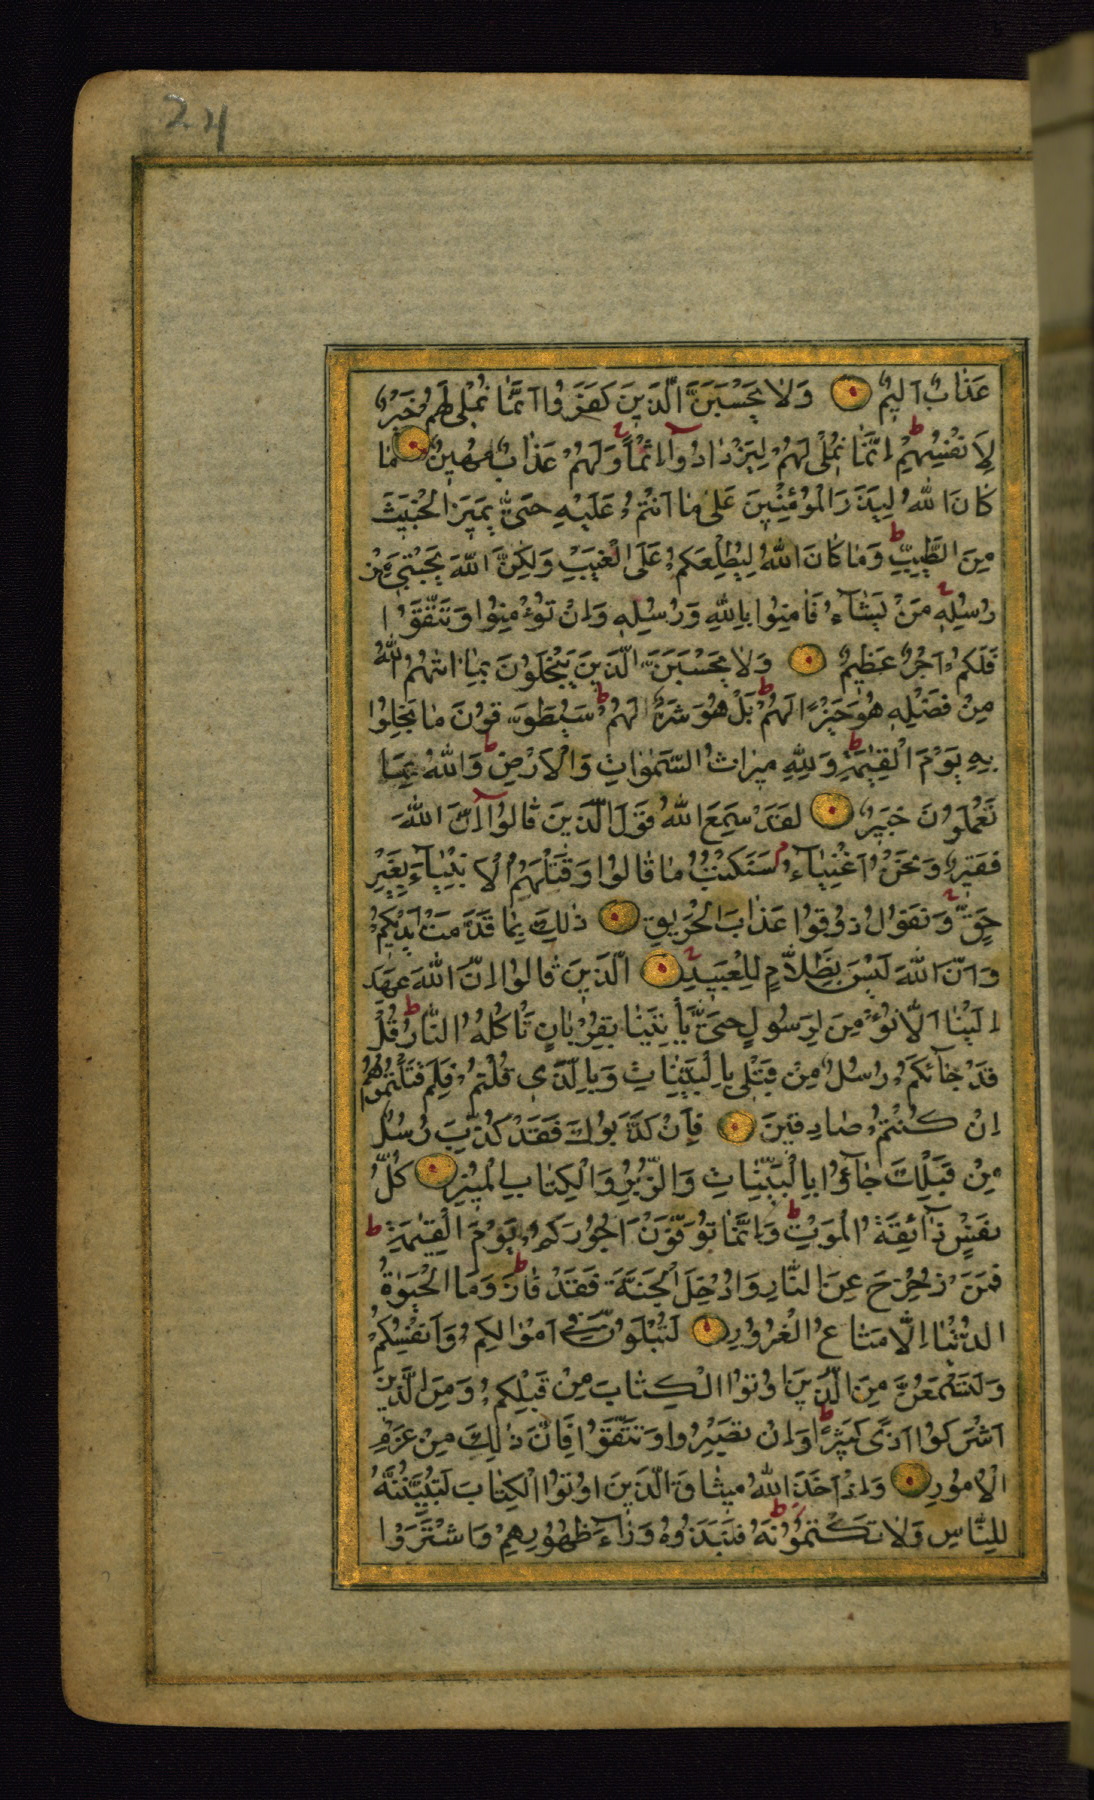 24
عَذَابٌ اَلِيمٌ وَلَا يَحْسَبَنَّ الَّذِينَ كَفَرُوا اَنَّمَا نُمْلِى لَهُمْ خَيْرٌ
لِاَنْفُسِهِمْ ط اِنَّمَا نُمْلِى لَهُمْ لِيَزْدَادُوآ اِثْمًا وَلَهُمْ عَذَابٌ مُهِينٌ مَا
كَانَ اللّٰهُ لِيَذَرَ الْمُؤْمِنِينَ عَلٰى مَا اَنْتُمْ عَلَيْهِ حَتّٰى يَمِيزَ الْخَبِيثَ
مِنَ الطَّيِّبِ ط وَمَا كَانَ اللّٰهُ لِيُطْلِعَكُمْ عَلَى الْغَيْبِ وَلٰكِنَّ اللّٰهَ يَجْتَبِى مِنْ
رُسُلِهِ مَنْ يَشَآءُ فَاٰمِنُوا بِاللّٰهِ وَرُسُلِهِ وَاِنْ تُؤْمِنُوا وَتَتَّقُوا
فَلَكُمْ اَجْرٌ عَظِيمٌ وَلَا يَحْسَبَنَّ الَّذِينَ يَبْخَلُونَ بِمَا اٰتٰهُمُ اللّٰهُ
مِنْ فَضْلِهِ هُوَ خَيْرًا لَهُمْ ط بَلْ هُوَ شَرٌّ لَهُمْ ط سَيُطَوَّقُونَ مَا بَخِلُوا
بِهِ يَوْمَ الْقِيٰمَةِ ط وَلِلّٰهِ مِيرَاثُ السَّمٰوَاتِ وَالْاَرْضِ ط وَاللّٰهُ بِمَا
تَعْمَلُونَ خَبِيرٌ لَقَدْ سَمِعَ اللّٰهُ قَوْلَ الَّذِينَ قَالُوآ اِنَّ اللّٰهَ
فَقِيرٌ وَنَحْنُ اَغْنِيَآءُ م سَنَكْتُبُ مَا قَالُوا وَقَتْلَهُمُ الْاَنْبِيَآءَ بِغَيْرِ
حَقٍّ وَنَقُولُ ذُوقُوا عَذَابَ الْحَرِيقِ ذٰلِكَ بِمَا قَدَّمَتْ اَيْدِيكُمْ
وَاَنَّ اللّٰهَ لَيْسَ بِظَلَّامٍ لِلْعَبِيدِ الَّذِينَ قَالُوا اِنَّ اللّٰهَ عَهِدَ
اِلَيْنَا اَلَّا نُؤْمِنَ لِرَسُولٍ حَتّٰى يَأْتِيَنَا بِقُرْبَانٍ تَأْكُلُهُ النَّارُ ط قُلْ
قَدْ جَآئَكُمْ رُسُلٌ مِنْ قَبْلِى بِالْبَيِّنَاتِ وَبِالَّذِى قُلْتُمْ فَلِمَ قَتَلْتُمُوهُمْ
اِنْ كُنْتُمْ صَادِقِينَ فَاِنْ كَذَّبُوكَ فَقَدْ كُذِّبَ رُسُلٌ
مِنْ قَبْلِكَ جَآؤُا بِالْبَيِّنَاتِ وَالزُّبُرِ وَالْكِتَابِ الْمُنِيرِ كُلُّ
نَفْسٍ ذَآئِقَةُ الْمَوْتِ ط وَاِنَّمَا تُوَفَّوْنَ اُجُورَكُمْ يَوْمَ الْقِيٰمَةِ ط
فَمَنْ زُحْزِحَ عَنِ النَّارِ وَاُدْخِلَ الْجَنَّةَ فَقَدْ فَازَ ط وَمَا الْحَيٰوةُ
الدُّنْيَا اِلَّا مَتَاعُ الْغُرُورِ لَتُبْلَوُنَّ فِى اَمْوَالِكُمْ وَاَنْفُسِكُمْ
وَلَتَسْمَعُنَّ مِنَ الَّذِينَ اُوتُوا الْكِتَابَ مِنْ قَبْلِكُمْ وَمِنَ الَّذِينَ
اَشْرَكُوا اَذًى كَثِيرًا ط وَاِنْ تَصْبِرُوا وَتَتَّقُوا فَاِنَّ ذٰلِكَ مِنْ عَزْمِ
الْاُمُورِ وَاِذْ اَخَذَ اللّٰهُ مِيثَاقَ الَّذِينَ اُوتُوا الْكِتَابَ لَتُبَيِّنُنَّهُ
لِلنَّاسِ وَلَا تَكْتُمُونَهُ ط فَنَبَذُوهُ وَرَآءَ ظُهُورِهِمْ وَاشْتَرَوْا